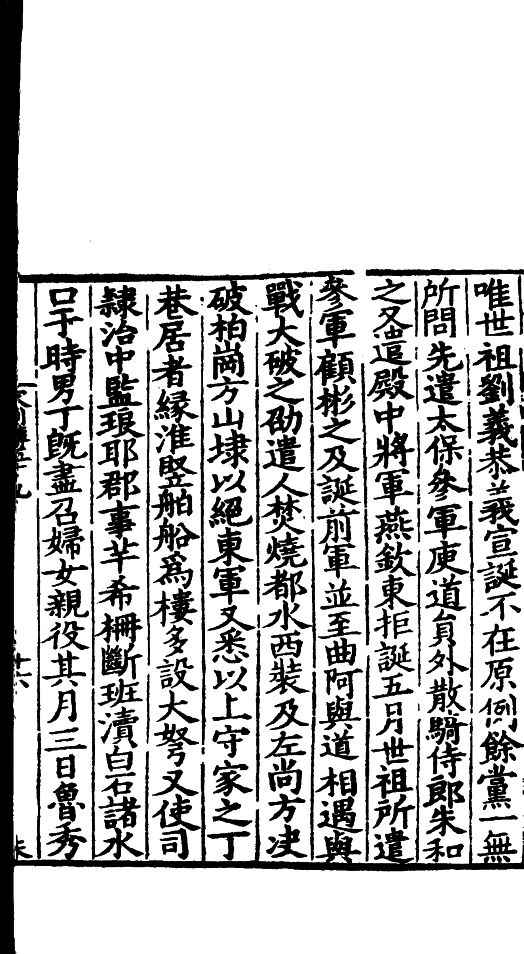 唯世祖劉義恭義宣誕不在原例餘黨一無
所問先遣太保參軍庾道員外散騎侍郎朱和
之又遣殿中將軍燕欽東拒誕五月世祖所遣
參軍顧彬之及誕前軍並至曲阿與道相遇與
戰大破之劭遣人焚燒都水西裝及左尚方決
破柏崗方山埭以絕東軍又悉以上守家之丁
巷居者緣淮豎舶船為樓多設大弩又使司
隸治中監琅耶郡事羊希柵斷班瀆白石諸水
口于時男丁既盡召婦女親役其月三日魯秀